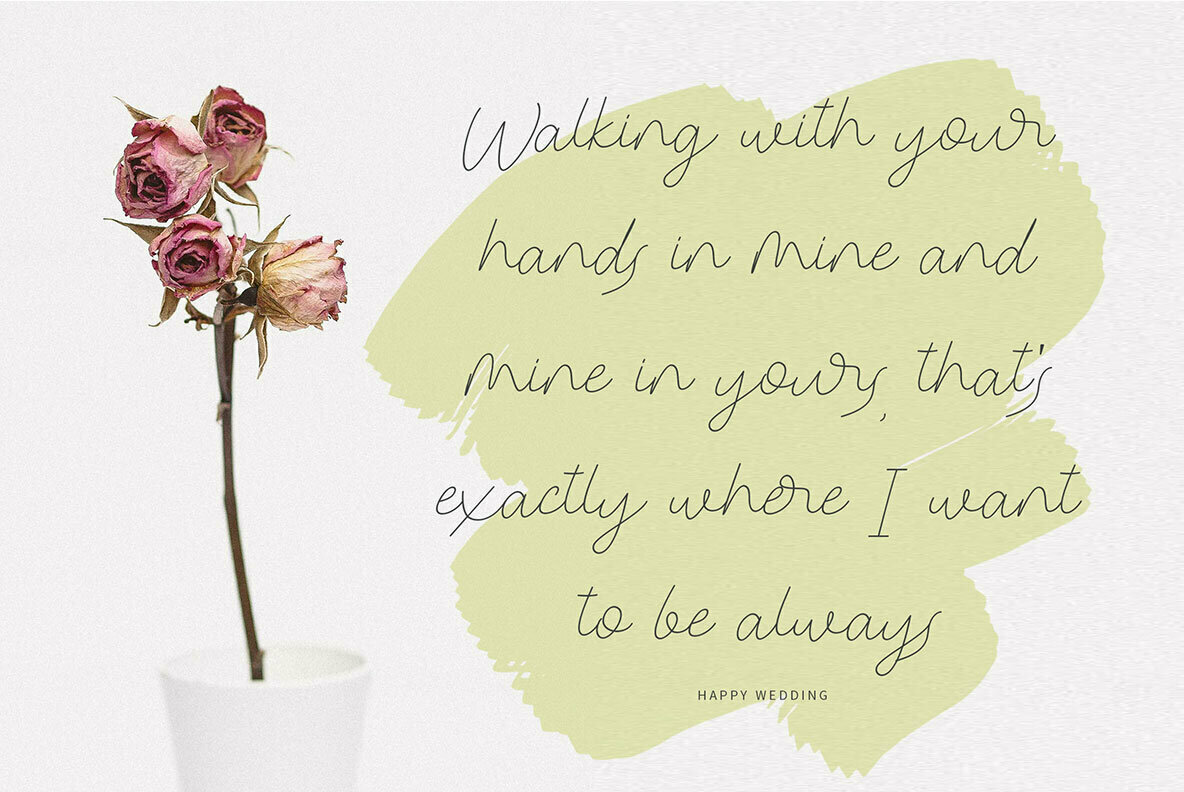 Walking with your
hands in mine and
mine in yours, that's
exactly where I want
to be always
HAPPY WEDDING